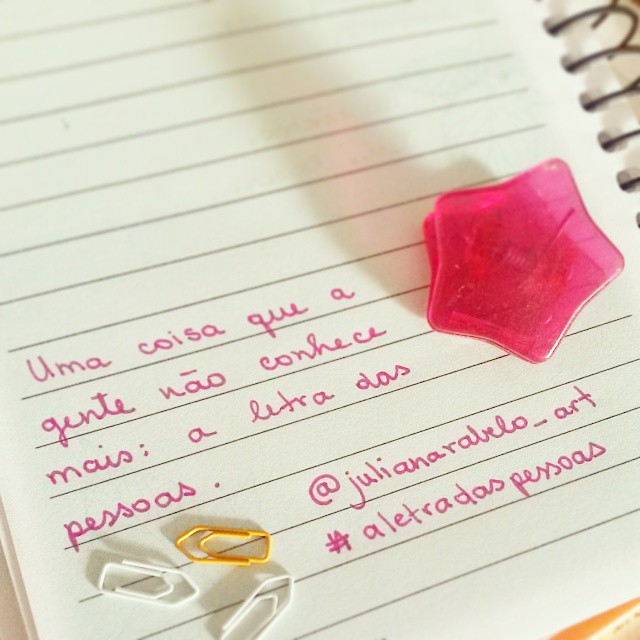 Uma coisa que a
gente não conhece
mais: a letra das
pessoas.
@julianarabelo_art
#aletradaspessoas